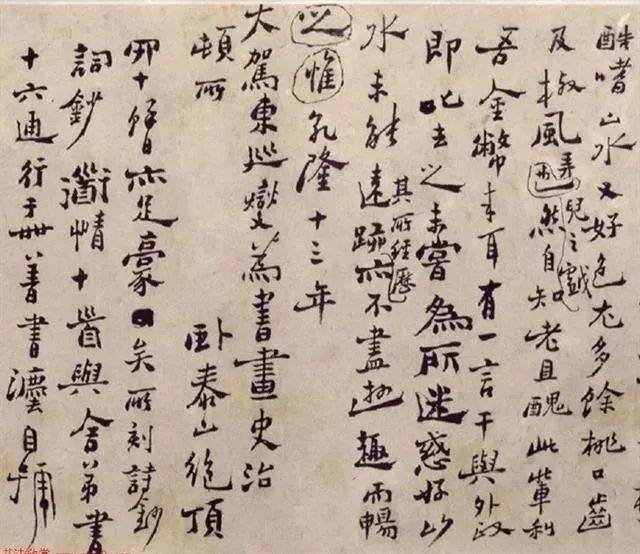 酷嗜山水又好色尤多餘桃口齒
及椒風弄兒之戲然自知老且醜此輩利
吾金幣來耳有一言干與外政
即叱去之未嘗為所迷惑好山
水未能遠跡其所經歷亦不盡遊趣而暢
之惟乾隆十三年
大駕東巡燮為書畫史治
頓所 臥泰山絕頂
四十餘日亦足豪矣所刻詩鈔
詞鈔衜情十首與舍弟書
十六通行于世善書灋自號